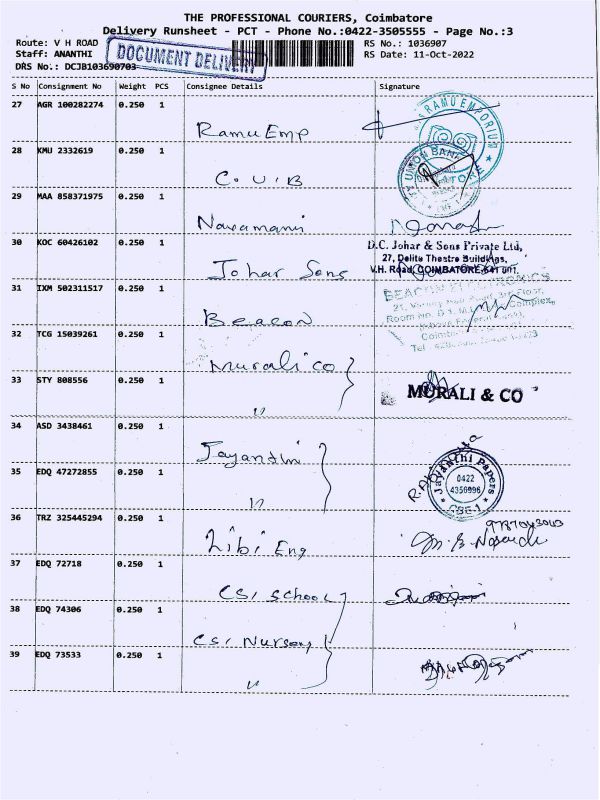 THE PROFESSIONAL COURIERS, Coimbatore
Delivery Runsheet - PCT - Phone No.:0422-3505555 - Page No.:3
Route: V H ROAD
RS No.: 1036907
Staff: ANANTHI
RS Date: 11-Oct-2022
DOCUMENT DELIVERY
DRS No.: DCJB103690703
S No Consignment No Weight PCS Consignee Details Signature
27 AGR 100282274 0.250 1 Ramu Emp
RAMU EMPORIUM
28 KMU 2332619 0.250 1 C.U.B
UNION BANK
29 MAA 858371975 0.250 1 Navamani
30 KOC 60426102 0.250 1 Johar Sons
D.C. Johar & Sons Private Ltd,
27, Delite Theatre Buildings,
V.H. Road, COIMBATORE-641 001.
31 IXM 502311517 0.250 1 Beacon
32 TCG 15039261 0.250 1 Murali co
33 STY 808556 0.250 1 "
MURALI & CO
34 ASD 3438461 0.250 1 Jayanthi
35 EDQ 47272855 0.250 1 "
Jayanthi Papers
0422
4356996
CBE-1
36 TRZ 325445294 0.250 1 Libi Eng
37 EDQ 72718 0.250 1 CSI School
38 EDQ 74306 0.250 1 CSI Nursery
39 EDQ 73533 0.250 1 "